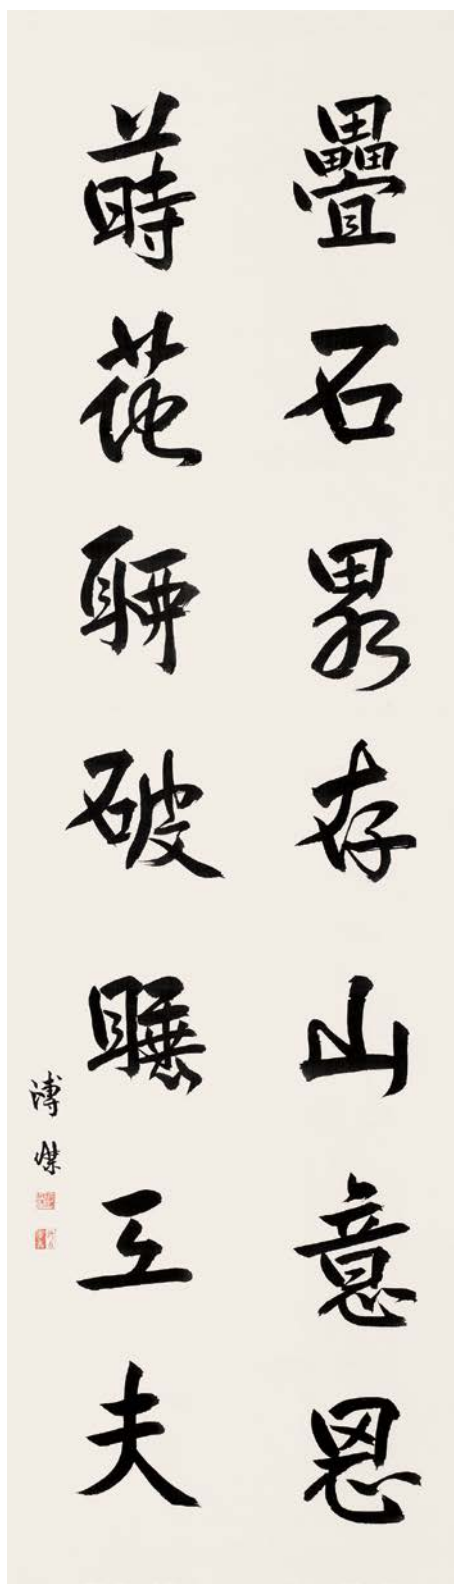 疊石畧存山意恖
蒔花聊破睡工夫
溥傑